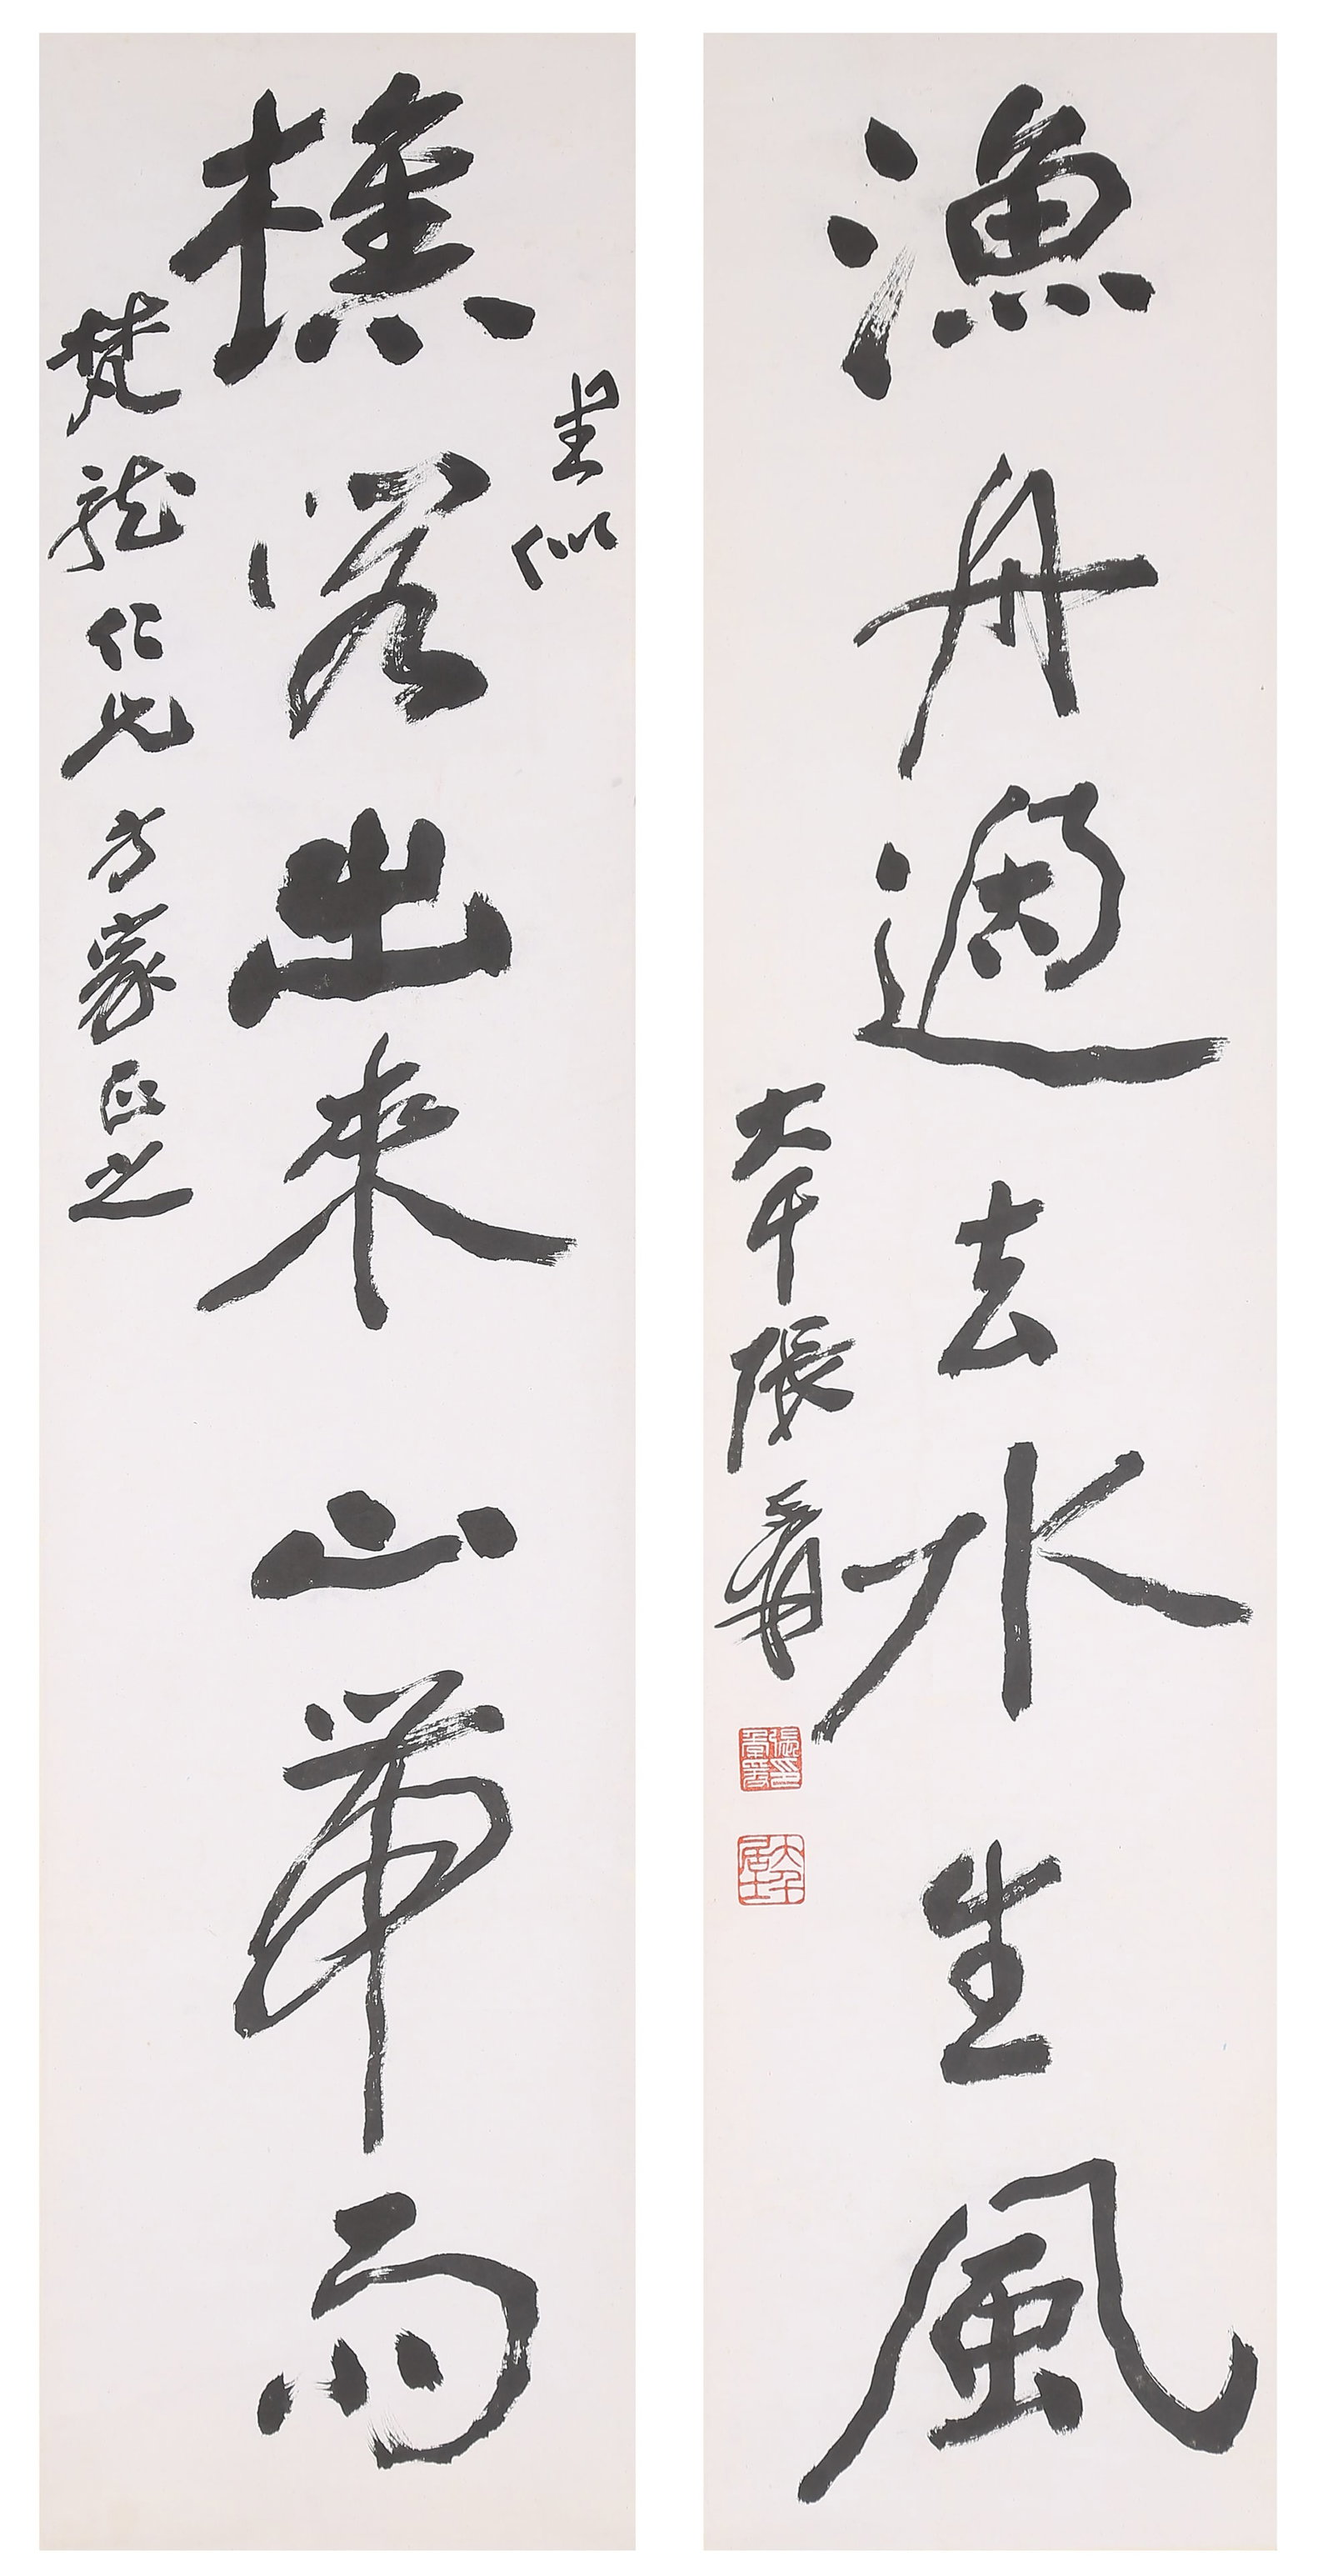 漁舟過去水生風
大千張爰
大千居士
呈似
樵客出來山帶雨
梵龍仁兄方家正之